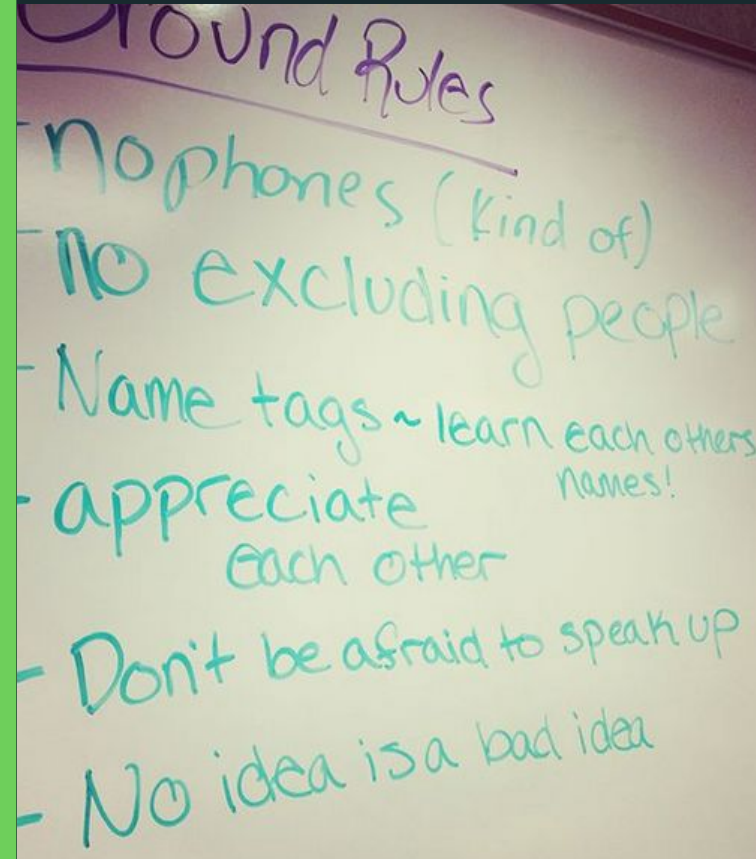 Ground Rules
- no phones (kind of)
- no excluding people
- Name tags ~ learn each others
names!
- appreciate
each other
- Don't be afraid to speak up
- No idea is a bad idea